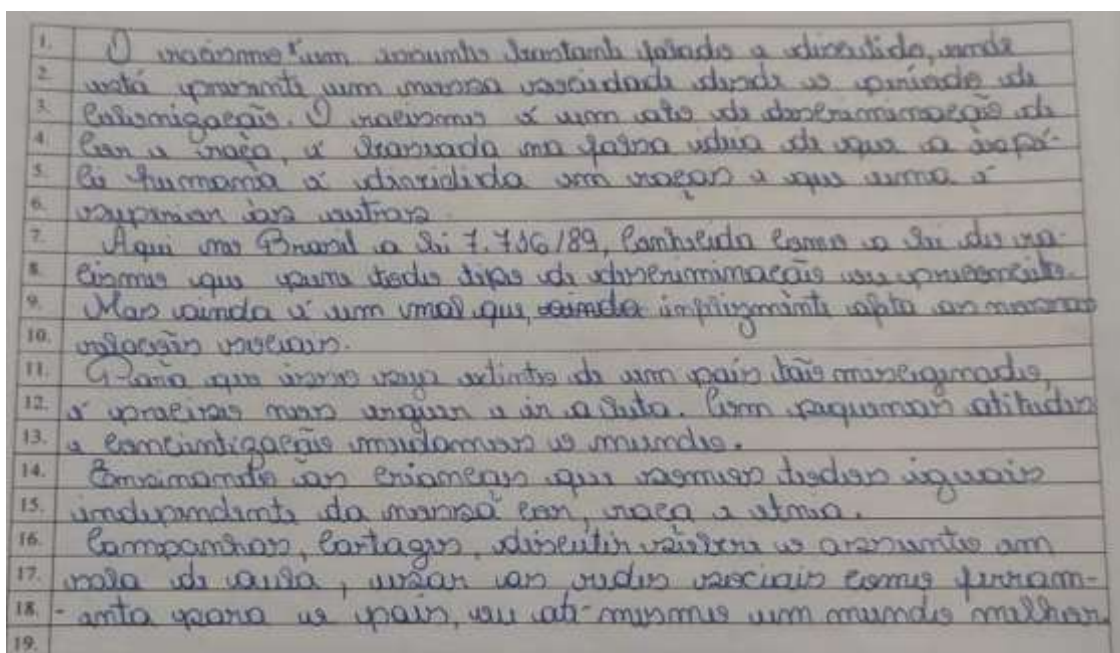 1. O racismo é um assunto bastante falado e discutido, onde
2. está presente em nossa sociedade desde o período de
3. Colonização. O racismo é um ato de discriminação de
4. Cor e raça, é baseada na falsa ideia de que a espé-
5. cie humana é dividida em raças e que uma é
6. superior as outras.
7. Aqui no Brasil a lei 7.716/89, Conhecida como a lei do ra-
8. cismo que pune todo tipo de discriminação ou preconceito.
9. Mas ainda é um mal que, ainda infelizmente afeta as nossas
10. relações sociais.
11. Para que isso seja extinto de um país tão miscigenado,
12. é preciso nos erguer e ir a luta. Com pequenas atitudes
13. e concientização mudamos o mundo.
14. Ensinando as crianças que somos todos iguais
15. independente da nossa cor, raça e etnia.
16. Campanhas, Cartages, discutir sobre o assunto em
17. sala de aula, usar as redes sociais como ferram-
18. -enta para o país, ou até mesmo um mundo melhor.
19.